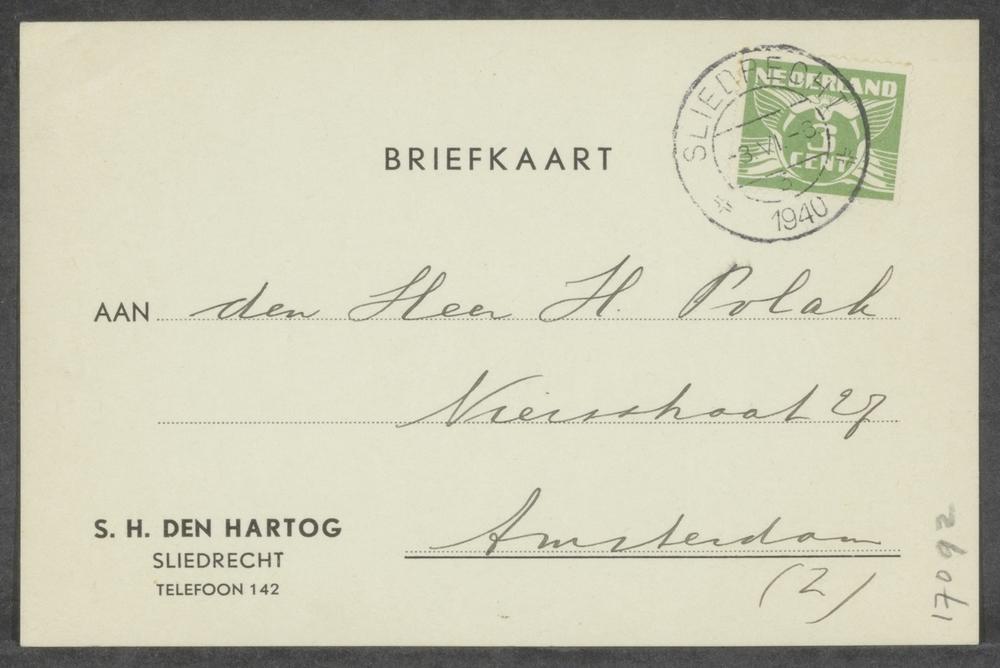 SLIEDRECHT
-3.VI.-6
1940
NEDERLAND
3
CENT
BRIEFKAART
AAN den Heer H. Polak
Niersstraat 27
S. H. DEN HARTOG
SLIEDRECHT
TELEFOON 142
Amsterdam
(Z)
17092